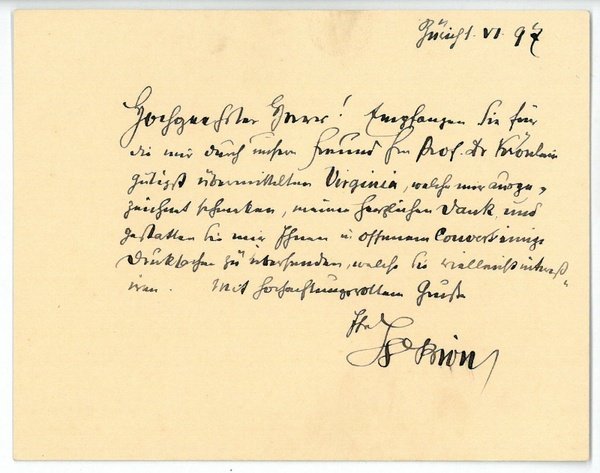 Zürich 1. VI. 97
Hochgeehrter Herr! Empfangen Sie für
die mir durch unsern Freund Hrn Prof. Dr Krönlein
gütigst übermittelten Virginia, welche mir ausge-
zeichnet schmecken, meinen herzlichen Dank und
gestatten Sie mir Ihnen in offenem Couvert einige
Drucksachen zu übersenden, welche Sie vielleicht interess-
iren. Mit hochachtungsvollem Gruße
Ihr
Bion